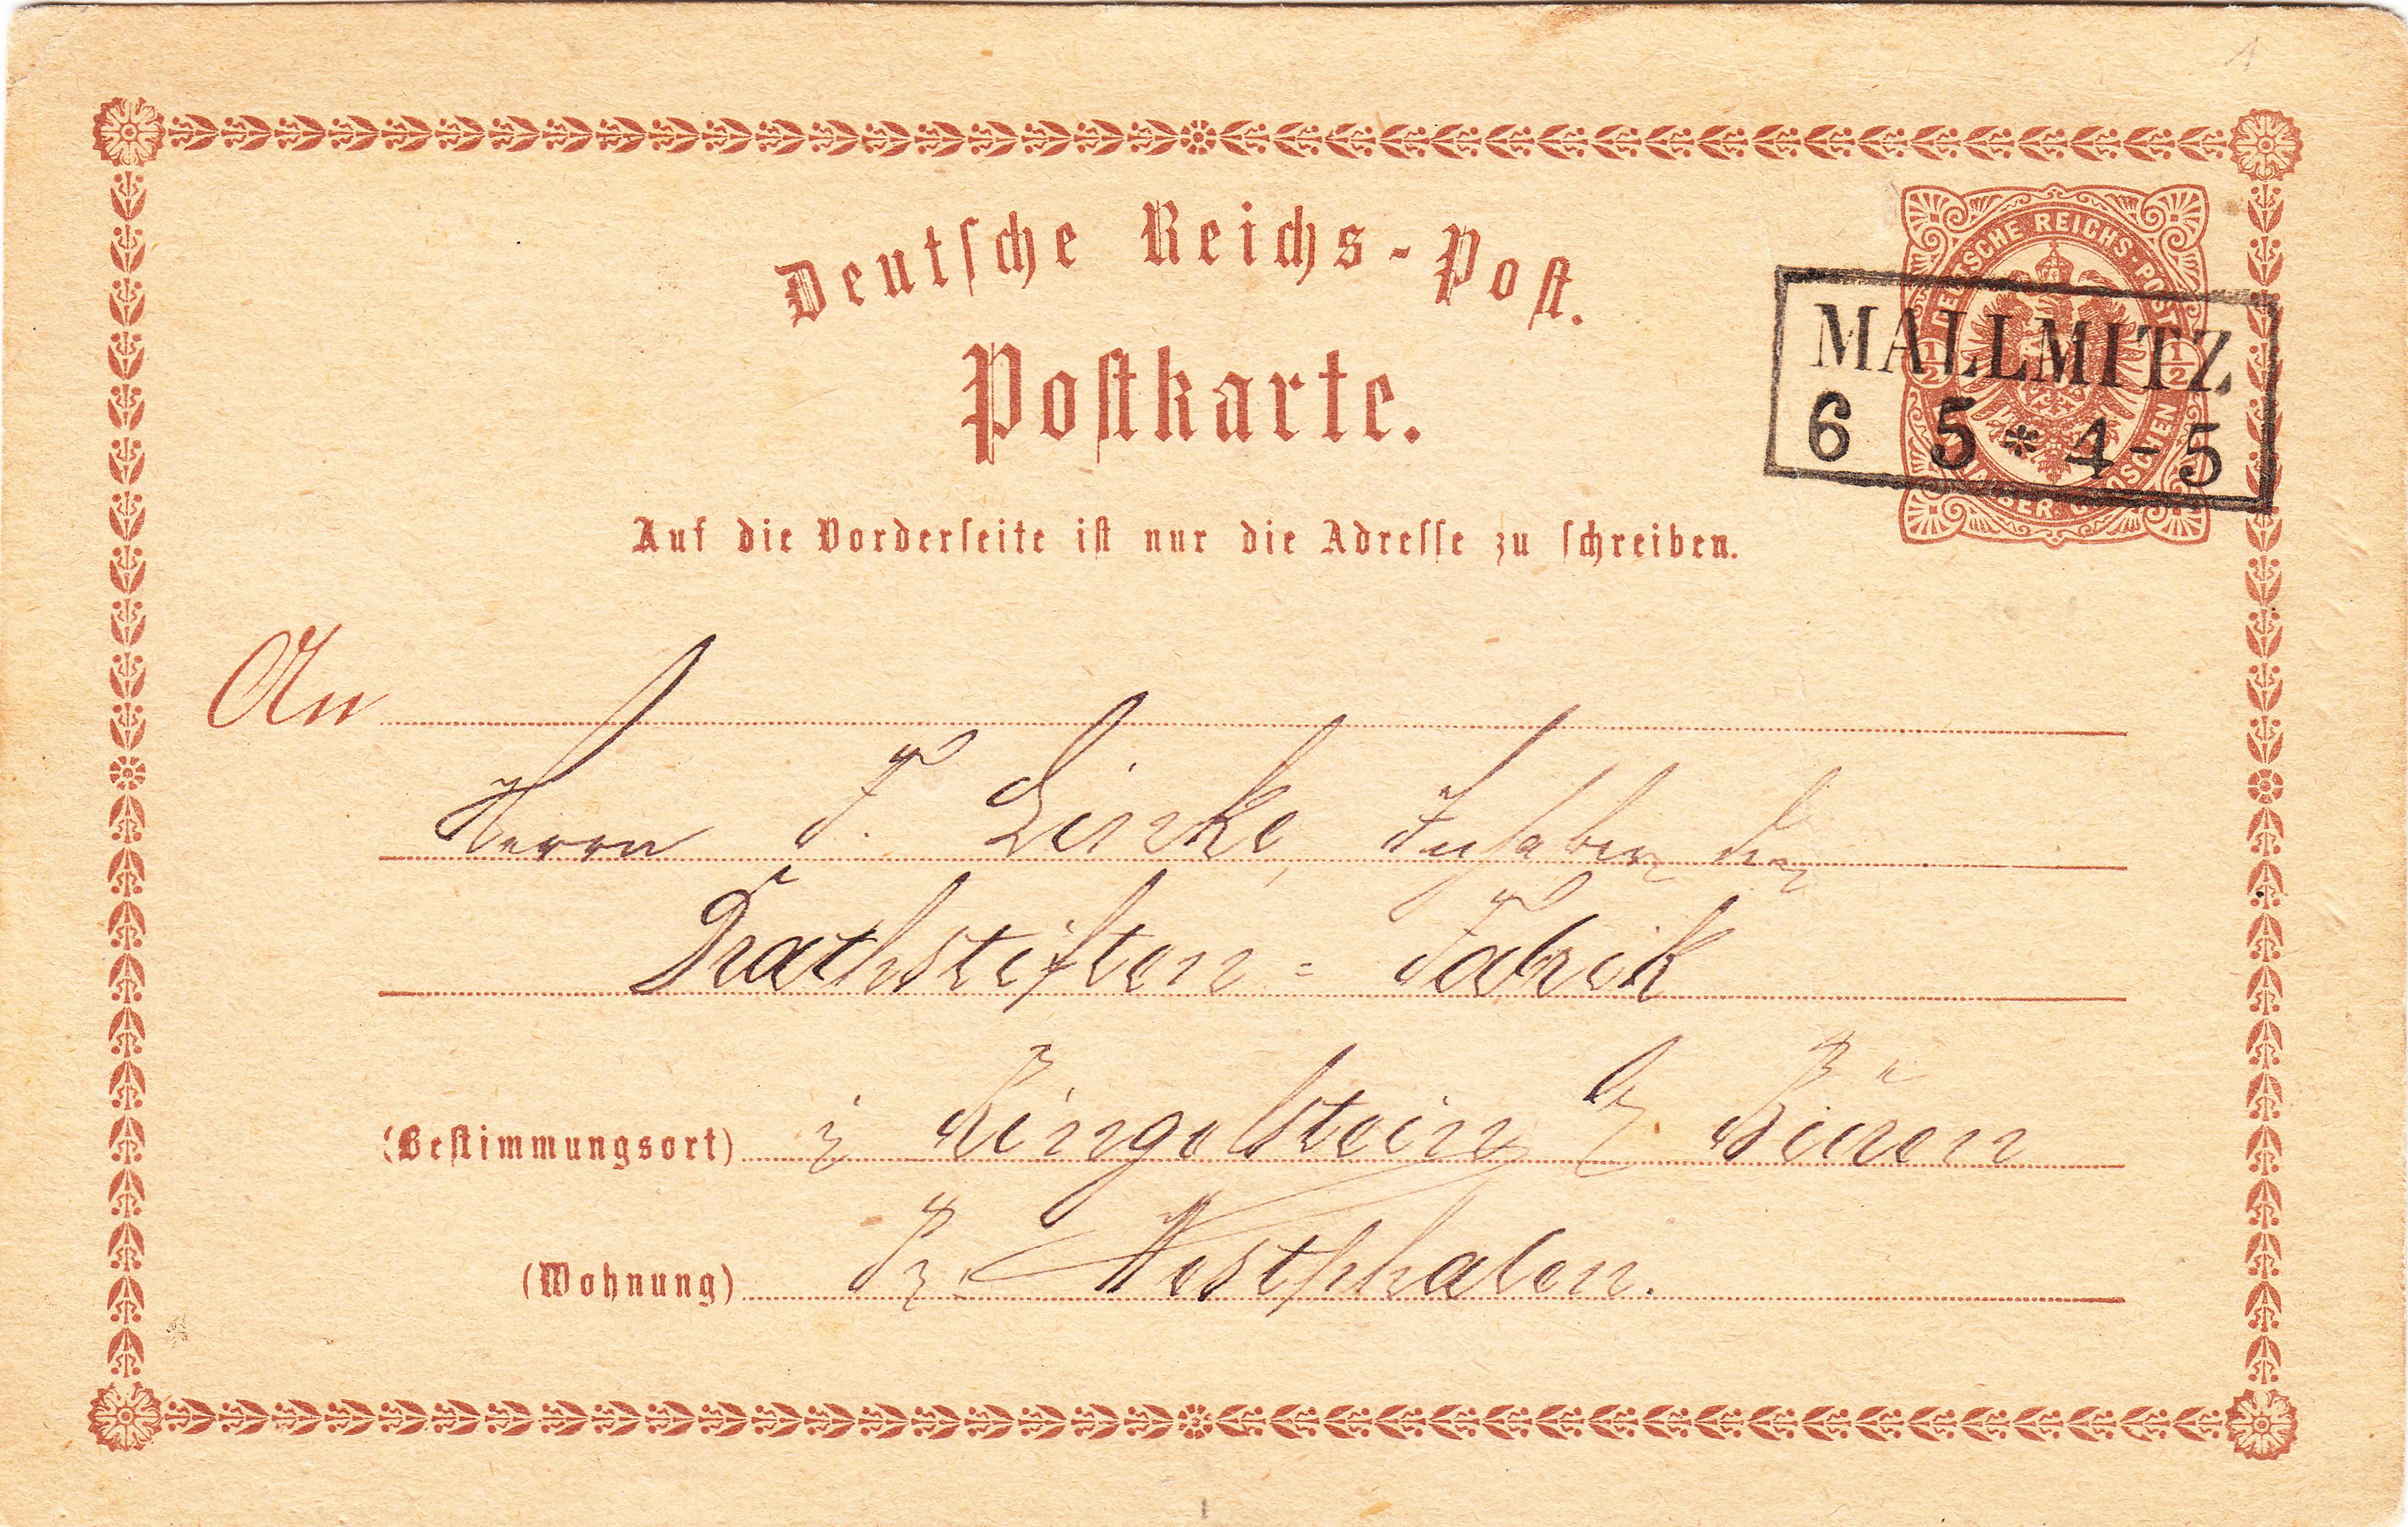 Deutsche Reichs-Post.
Postkarte.
DEUTSCHE REICHS-POST
1/2 1/2
HALBER GROSCHEN
MALLMITZ
6 5 * 4-5
Auf die Vorderseite ist nur die Adresse zu schreiben.
An
Herrn F. Linke, Inhaber der
Drathstiften = Fabrik
(Bestimmungsort) in Ringelstein b Büren
(Wohnung) Westphalen.